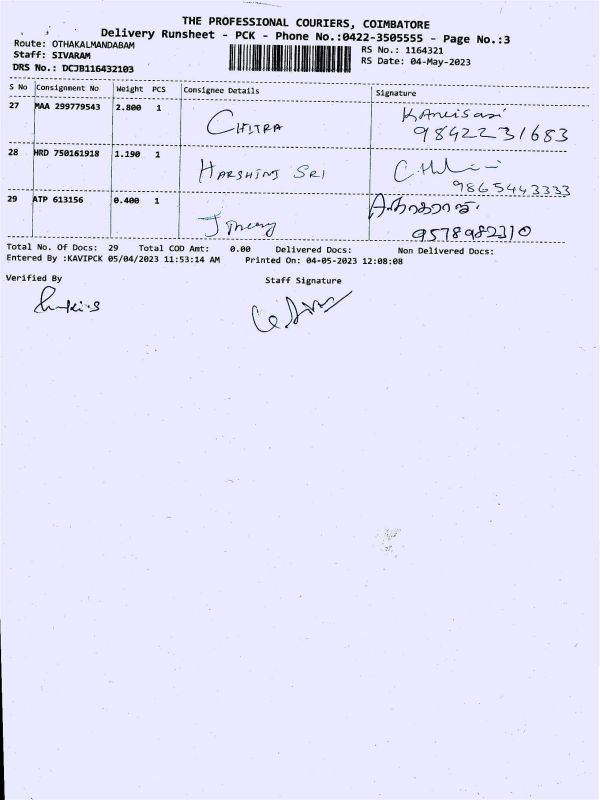 THE PROFESSIONAL COURIERS, COIMBATORE
Delivery Runsheet - PCK - Phone No.:0422-3505555 - Page No.:3
Route: OTHAKALMANDABAM
Staff: SIVARAM
DRS No.: DCJB116432103
RS No.: 1164321
RS Date: 04-May-2023
S No Consignment No Weight PCS Consignee Details Signature
27 MAA 299779543 2.800 1 CHITRA
9842231683
28 HRD 750161918 1.190 1 HARSHINI SRI
9865443333
29 ATP 613156 0.400 1
9578982310
Total No. Of Docs: 29 Total COD Amt: 0.00 Delivered Docs: Non Delivered Docs:
Entered By :KAVIPCK 05/04/2023 11:53:14 AM Printed On: 04-05-2023 12:08:08
Verified By Staff Signature